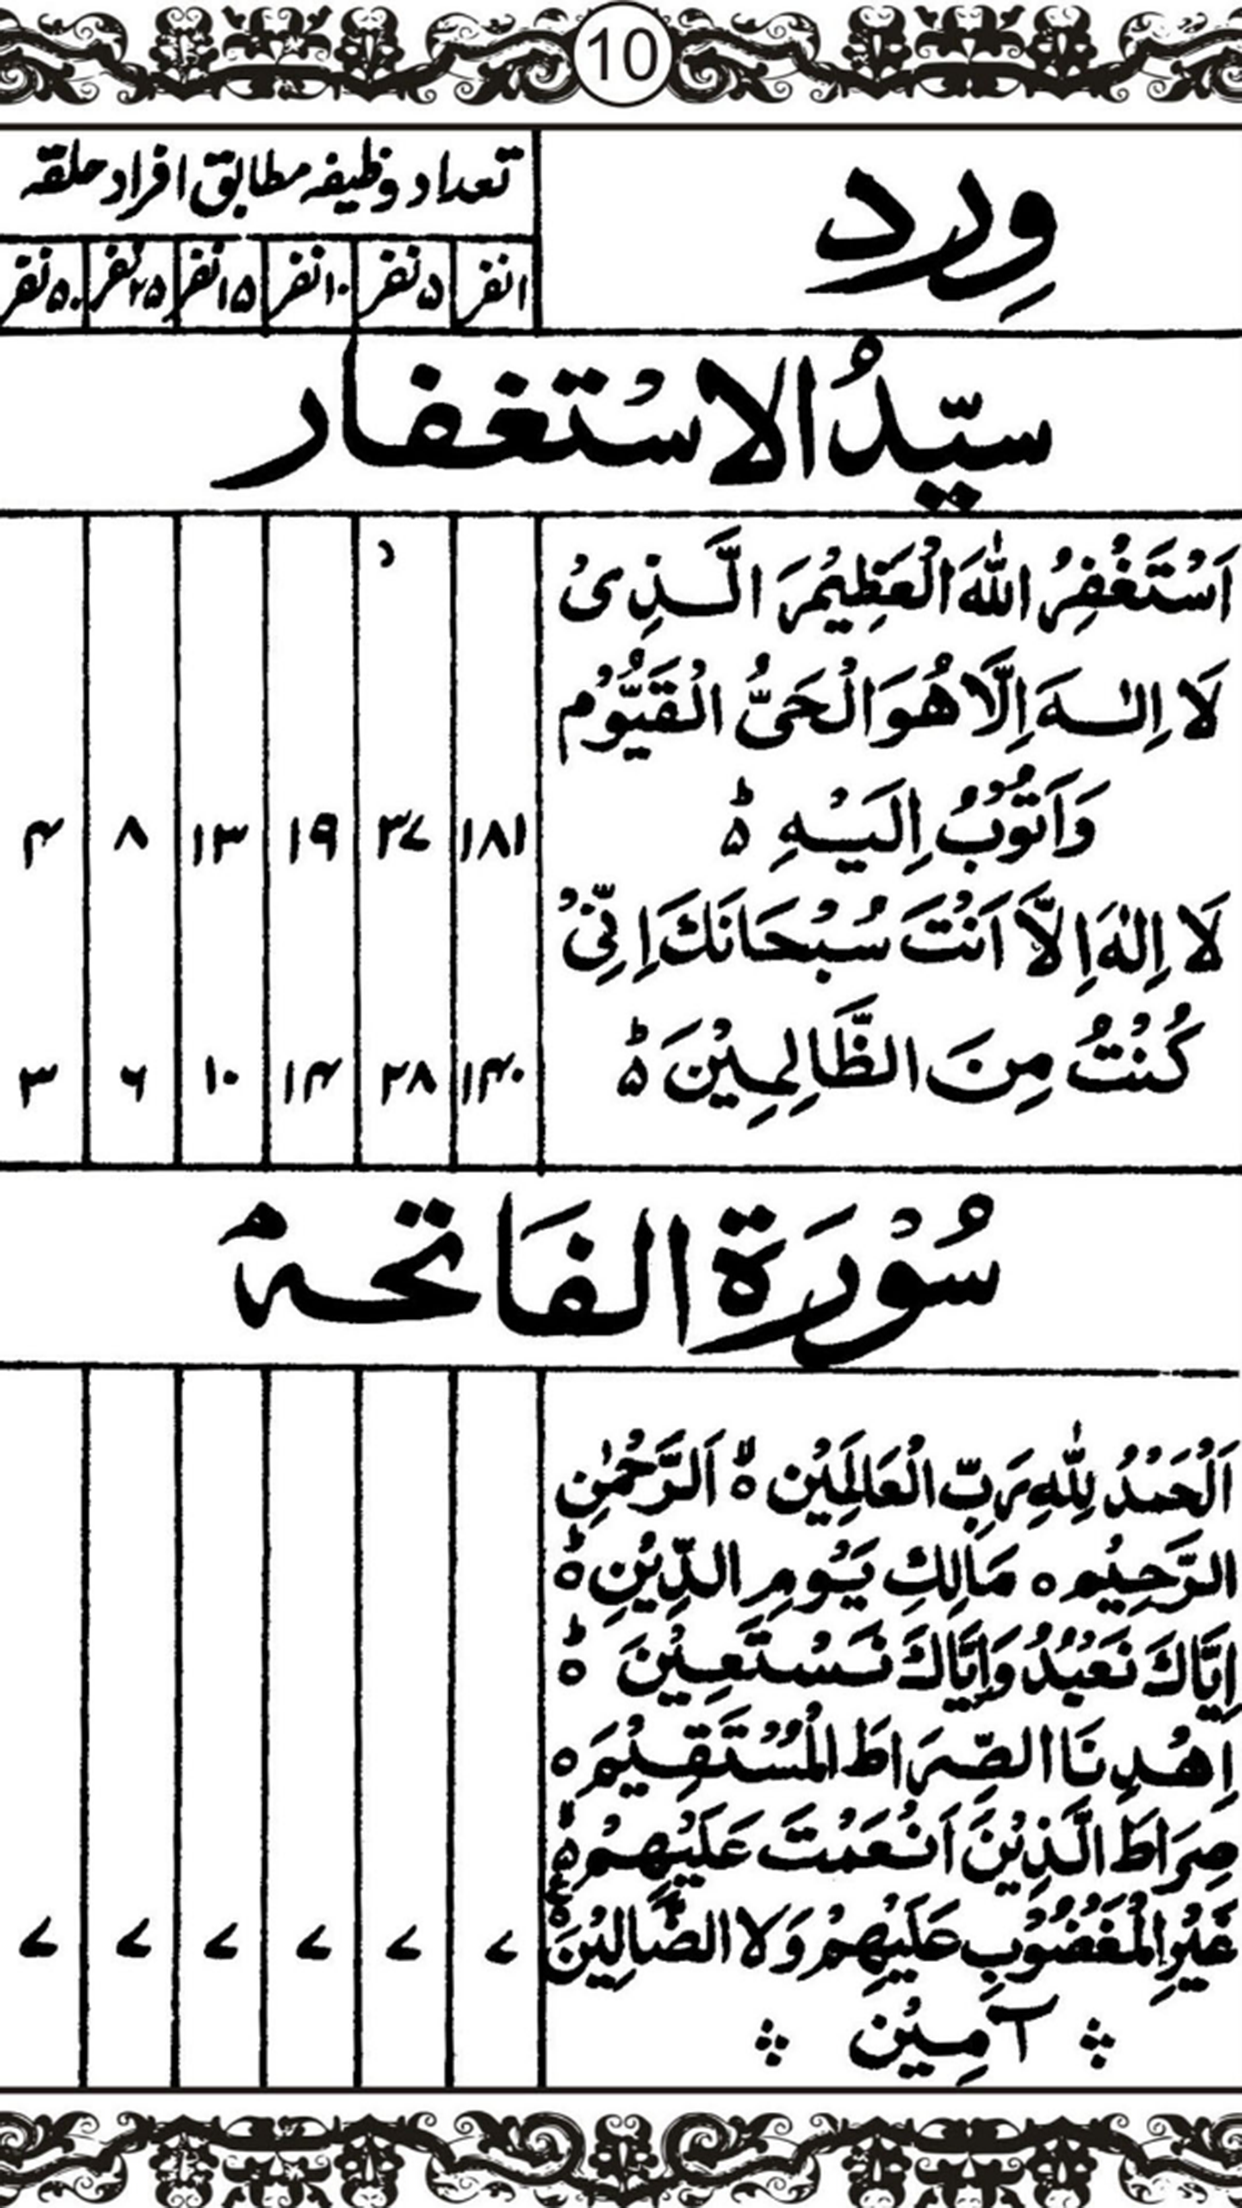 10
وِرد
تعداد وظیفہ مطابق افراد حلقہ
۱ نفر ۵ نفر ۱۰ نفر ۱۵ نفر ۲۵ نفر ۵۰ نفر
سیّدُ الاسْتغفار
اَسْتَغْفِرُ اللّٰهَ الْعَظِیْمَ الَّذِیْ
لَا اِلٰهَ اِلَّا هُوَ الْحَیُّ الْقَیُّوْم
وَاَتُوْبُ اِلَیْهِ ؕ ۱۸۱ ۳۷ ۱۹ ۱۳ ۸ ۴
لَا اِلٰهَ اِلَّا اَنْتَ سُبْحَانَكَ اِنِّیْ
كُنْتُ مِنَ الظَّالِمِیْنَ ؕ ۱۴۰ ۲۸ ۱۴ ۱۰ ۶ ۳
سُوْرَة الفَاتحہ
اَلْحَمْدُ لِلّٰهِ رَبِّ الْعَالَمِیْن ۙ اَلرَّحْمٰنِ
الرَّحِیْم ہ مَالِكِ یَوْمِ الدِّیْنِ ؕ
اِیَّاكَ نَعْبُدُ وَاِیَّاكَ نَسْتَعِیْنَ ؕ
اِهْدِنَا الصِّرَاطَ الْمُسْتَقِیْمَ ہ
صِرَاطَ الَّذِیْنَ اَنْعَمْتَ عَلَیْهِمْ ۙ
غَیْرِ الْمَغْضُوْبِ عَلَیْهِمْ وَلَا الضَّالِیْنَ ۷ ۷ ۷ ۷ ۷ ۷
آمِیْن